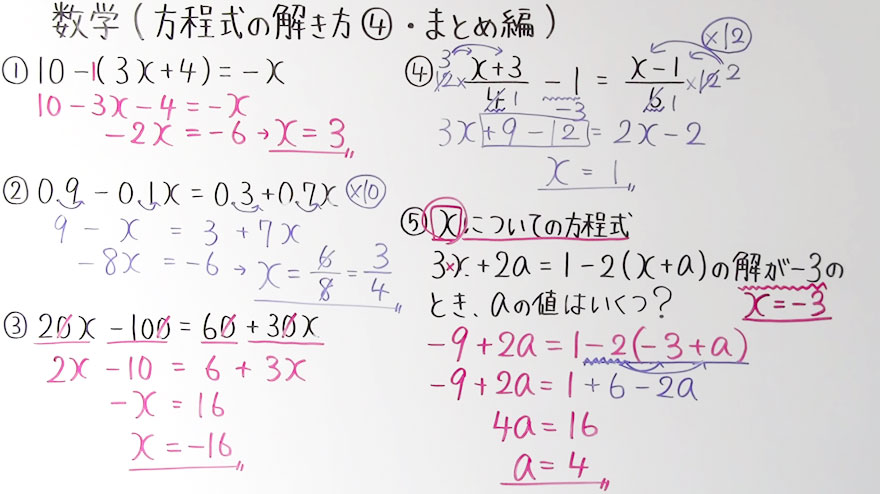 数学(方程式の解き方④・まとめ編)
① 10-1(3x+4)=-x
10-3x-4=-x
-2x=-6→x=3
② 0.9-0.1x=0.3+0.7x ×10
9-x=3+7x
-8x=-6→x=6/8=3/4
③ 20x-100=60+30x
2x-10=6+3x
-x=16
x=-16
×12
④ 3 12× (x+3)/4 1 -1 = (x-1)/6 1 ×12 2
-3
3x+9-12=2x-2
x=1
⑤ xについての方程式
3×x+2a=1-2(x+a)の解が-3の
とき、aの値はいくつ? x=-3
-9+2a=1-2(-3+a)
-9+2a=1+6-2a
4a=16
a=4